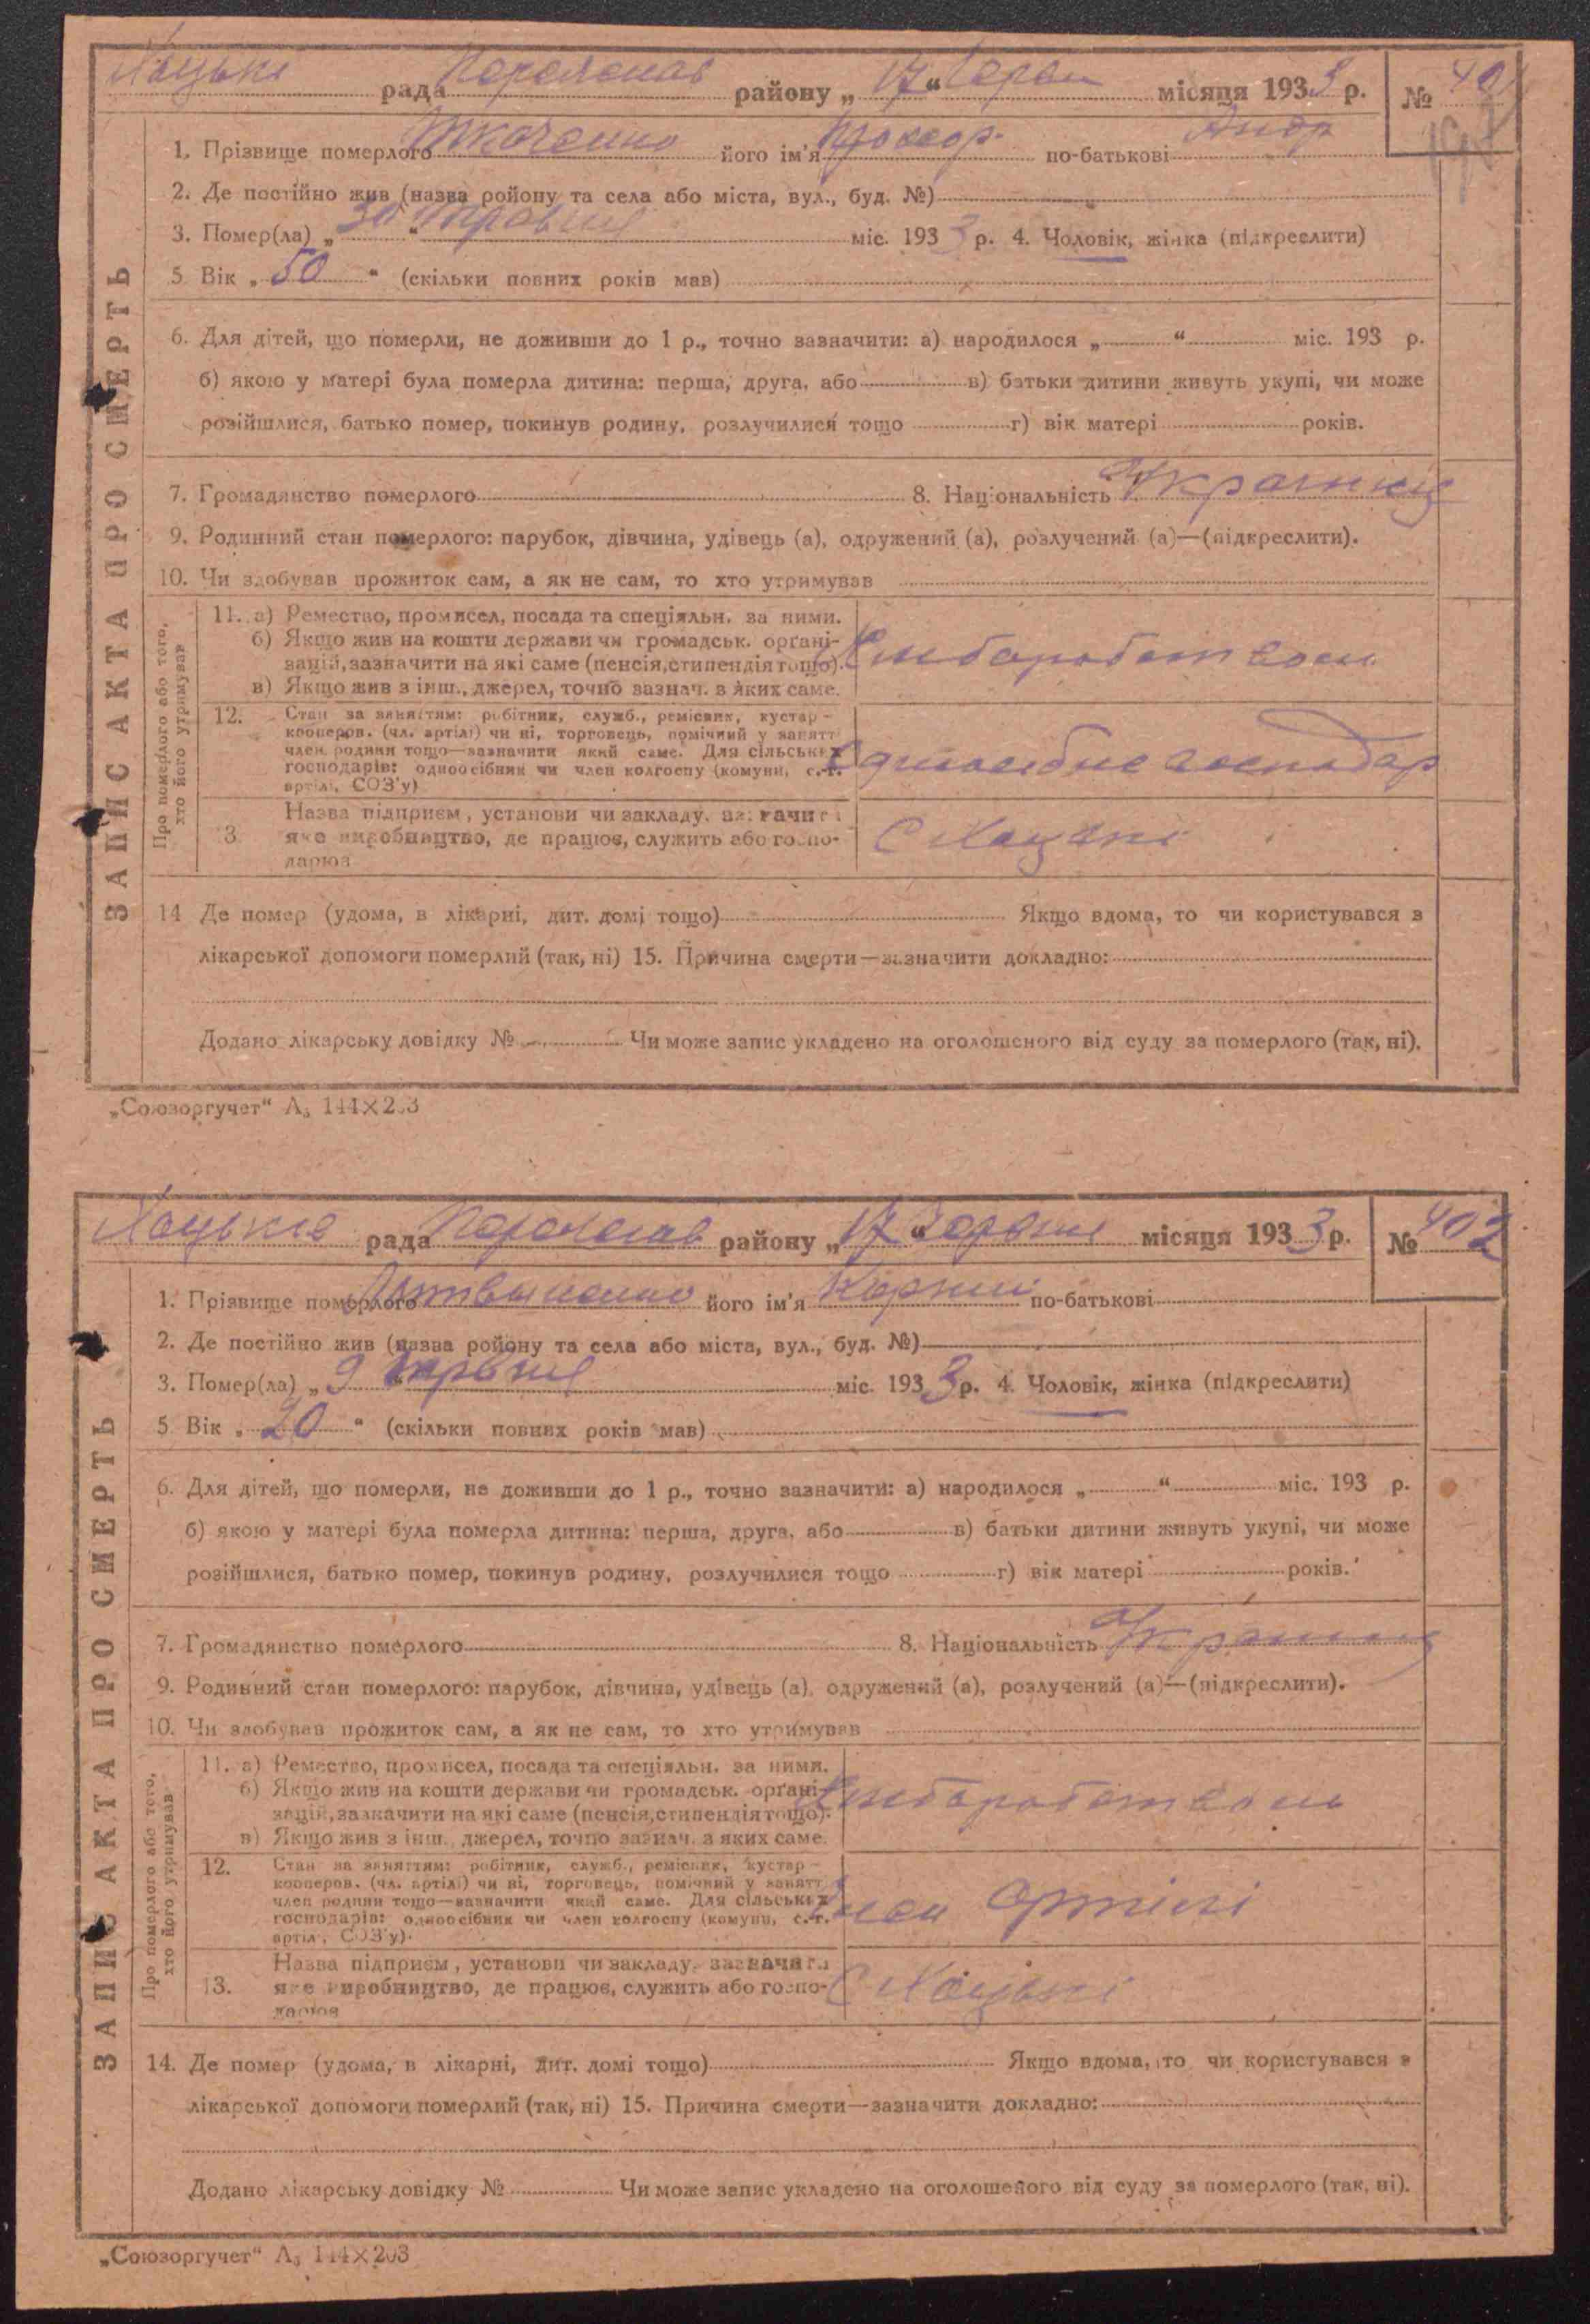 Хоцьки рада Переяслав району „17“ Червн місяця 1933 р. № 401
1. Прізвище померлого Ткаченко його ім'я Прокоп. по-батькові Андр
2. Де постійно жив (назва ройону та села або міста, вул., буд. №)
3. Помер(ла) „30“ травня міс. 1933 р. 4. Чоловік, жінка (підкреслити)
5 Вік „50“ (скільки повних років мав)
6. Для дітей, що померли, не доживши до 1 р., точно зазначити: а) народилося „ “ міс. 193 р.
б) якою у матері була померла дитина: перша, друга, або в) батьки дитини живуть укупі, чи може
розійшлися, батько помер, покинув родину, розлучилися тощо г) вік матері років.
7. Громадянство померлого 8. Національність Українець
9. Родинний стан померлого: парубок, дівчина, удівець (а), одружений (а), розлучений (а)—(підкреслити).
10. Чи здобував прожиток сам, а як не сам, то хто утримував
ЗАПИС АКТА ПРО СМЕРТЬ
Про померлого або того,
хто його утримував
11. а) Ремество, промисел, посада та спеціяльн. за ними.
б) Якщо жив на кошти держави чи громадськ. органі-
зацій, зазначити на які саме (пенсія, стипендія тощо).
в) Якщо жив з інш., джерел, точно зазнач. в яких саме.
Хліборобством
12. Стан за заняттям: робітник, служб., ремісник, кустар-
кооперов. (чл. артілі) чи ні, торговець, помічний у занятті
член родини тощо—зазначити який саме. Для сільських
господарів: одноосібник чи член колгоспу (комуни, с.-г.
артілі, СОЗ'у)
Одноосібне господар
3. Назва підприєм, установи чи закладу, зазначити
яке виробництво, де працює, служить або госпо-
дарює
С Хоцьки
14 Де помер (удома, в лікарні, дит. домі тощо) Якщо вдома, то чи користувався з
лікарської допомоги померлий (так, ні) 15. Причина смерти—зазначити докладно:
Додано лікарську довідку № Чи може запис укладено на оголошеного від суду за померлого (так, ні).
„Союзоргучет“ А₅ 144×203
Хоцьке рада Переяслав району „17“ Червня місяця 1933 р. № 402
1. Прізвище померлого Литвиненко його ім'я Корній по-батькові
2. Де постійно жив (назва ройону та села або міста, вул., буд. №)
3. Помер(ла) „9“ Червня міс. 1933 р. 4. Чоловік, жінка (підкреслити)
5 Вік „20“ (скільки повних років мав)
6. Для дітей, що померли, не доживши до 1 р., точно зазначити: а) народилося „ “ міс. 193 р.
б) якою у матері була померла дитина: перша, друга, або в) батьки дитини живуть укупі, чи може
розійшлися, батько помер, покинув родину, розлучилися тощо г) вік матері років.
7. Громадянство померлого 8. Національність Українец
9. Родинний стан померлого: парубок, дівчина, удівець (а), одружений (а), розлучений (а)—(підкреслити).
10. Чи здобував прожиток сам, а як не сам, то хто утримував
ЗАПИС АКТА ПРО СМЕРТЬ
Про померлого або того,
хто його утримував
11. а) Ремество, промисел, посада та спеціяльн. за ними.
б) Якщо жив на кошти держави чи громадськ. органі-
зацій, зазначити на які саме (пенсія, стипендія тощо).
в) Якщо жив з інш., джерел, точно зазнач. з яких саме.
Хліборобством
12. Стан за заняттям: робітник, служб., ремісник, кустар-
кооперов. (чл. артілі) чи ні, торговець, помічний у занятті
член родини тощо—зазначити який саме. Для сільських
господарів: одноосібник чи член колгоспу (комуни, с.-г.
артілі, СОЗ'у).
Член Ортілі
13. Назва підприєм, установи чи закладу, зазначити
яке виробництво, де працює, служить або госпо-
дарює
С Хоцькі
14. Де помер (удома, в лікарні, дит. домі тощо) Якщо вдома, то чи користувався з
лікарської допомоги померлий (так, ні) 15. Причина смерти—зазначити докладно:
Додано лікарську довідку № Чи може запис укладено на оголошеного від суду за померлого (так, ні).
„Союзоргучет“ А₅ 144×203